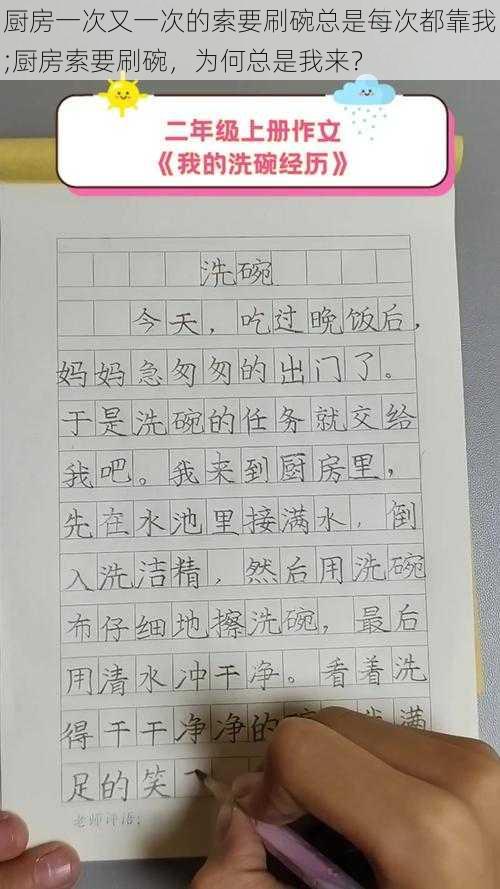 厨房一次又一次的索要刷碗总是每次都靠我
;厨房索要刷碗，为何总是我来?
二年级上册作文
《我的洗碗经历》
洗碗
今天，吃过晚饭后，
妈妈急匆匆的出门了。
于是洗碗的任务就交给
我吧。我来到厨房里，
先在水池里接满水，倒
入洗洁精，然后用洗碗
布仔细地擦洗碗，最后
用清水冲干净。看着洗
得干干净净的碗 满
足的笑了
老师评语: